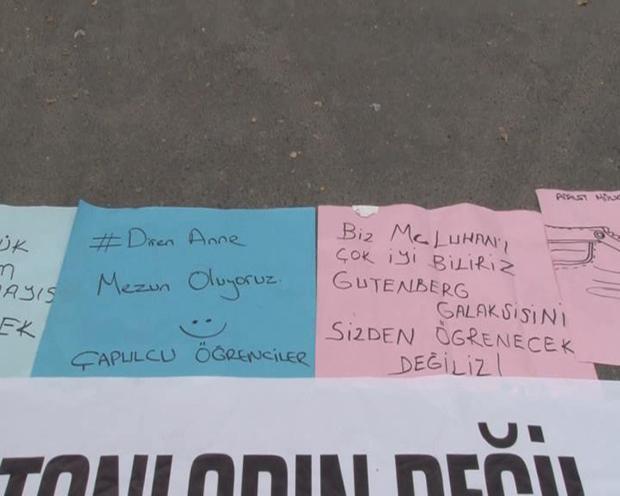 ÜK
EK
#Diren Anne
Mezun Oluyoruz.
ÇAPULCU ÖĞRENCİLER
Biz McLUHAN'I
ÇOK İYİ BİLİRİZ
GUTENBERG
GALAKSİSİNİ
SİZDEN ÖĞRENECEK
DEĞİLİZ!
DEĞİL